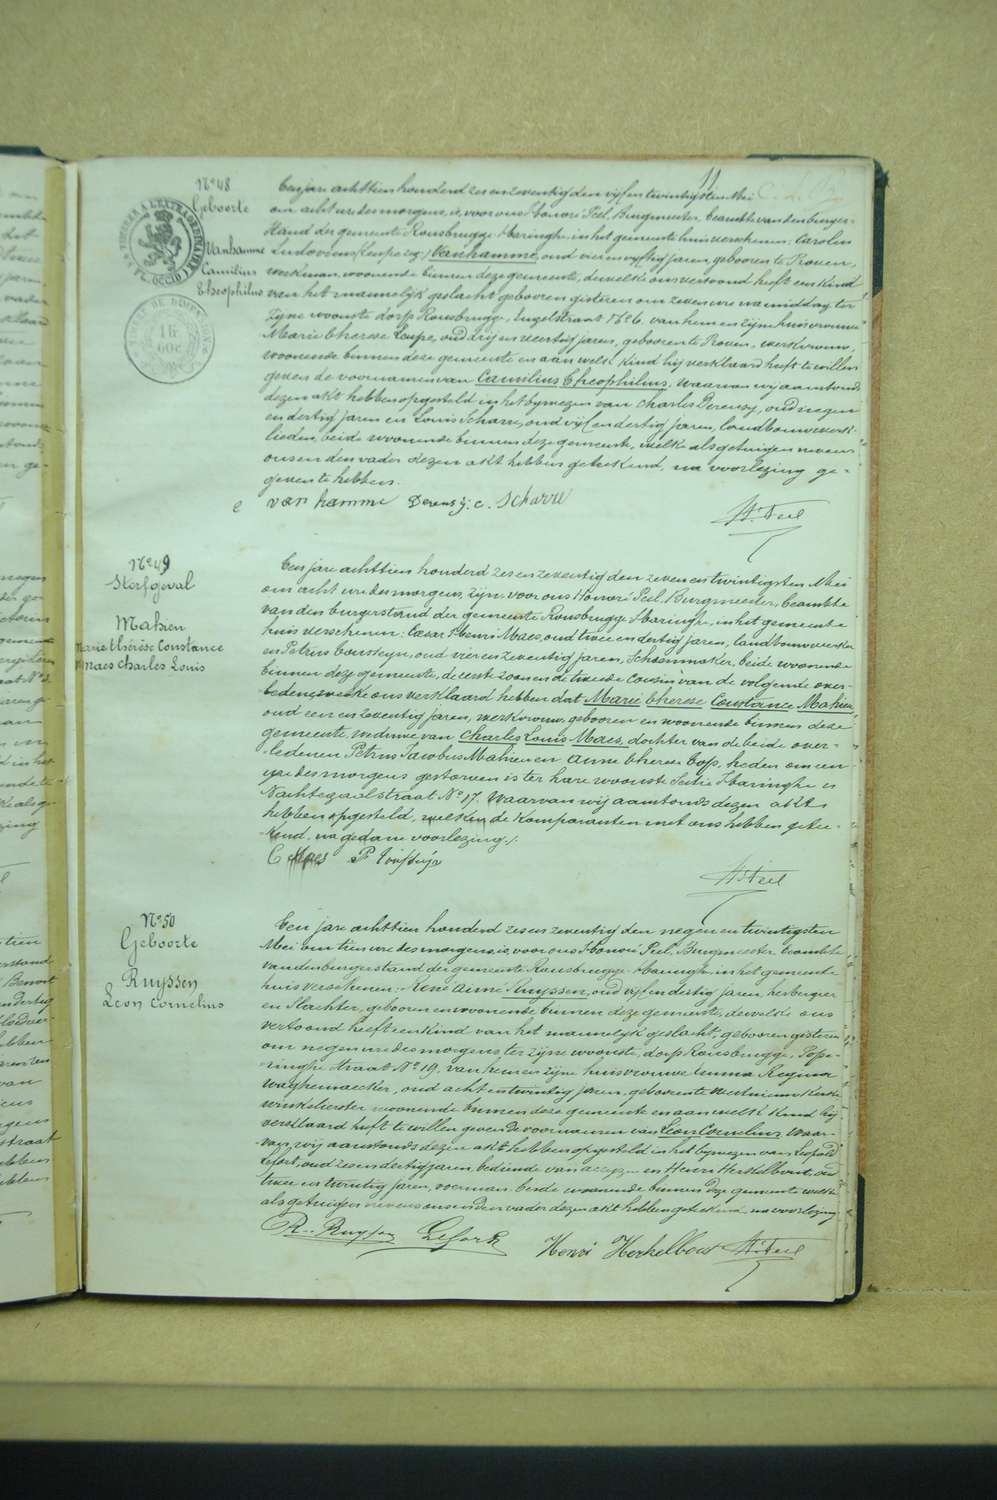 11
No 48
Geboorte
Vanhamme
Camilius
Theophilus
Een jare achttien honderd zes en zeventig den vyf en twintigsten Mei
om acht ure des morgens, is, voor ons Honoré Peel, Burgmeester, beambte van den burger-
stand der gemeente Rousbrugge-Haringhe, in het gemeente huis verschenen: Carolus
Ludovicus Vanhamme, oud vier en vyftig jaren, geboren te Proven,
werkman, woonende binnen deze gemeente, dewelke ons vertoond heeft een kind
van het mannelyk geslacht geboren gisteren om zeven ure namiddag ter
zyne woonste dorp Rousbrugge, Ingelstraat No 6. van hem en zyne huisvrouwe
Marie Therese Leupe, oud drij en veertig jaren, geboren te Proven, werkvrouw,
woonende binnen deze gemeente en aan welk kind hij verklaard heeft te willen
geven de voornamen van Camilius Theophilius, waarvan wij aanstonds
dezen akt hebben opgesteld in het bywezen van Charles Dereusy, oud negen
en dertig jaren en Louis Scharre, oud vijf en dertig jaren, landbouwwerk-
lieden, beide woonende binnen deze gemeente, welke als getuigen nevens
ons en den vader dezen akt hebben geteekend, na voorlezing ge-
geven te hebben.
C van hamme Dereusy. C. Scharre
H. Peel
No 49
Sterfgeval
Mahieu
Marie Thérèse Constance
Maes Charles Louis
Een jare achttien honderd zes en zeventig den zeven en twintigsten Mei
om acht ure des morgens, zijn voor ons Honoré Peel, Burgmeester, beambte
van den burgerstand der gemeente Rousbrugge-Haringhe, in het gemeente
huis verschenen: Cesar Henri Maes, oud twee en dertig jaren, landbouwwerker
en Petrus, oud vier en zeventig jaren, Schoenmaker, beide woonende
binnen deze gemeente, de eerste zoon en de tweede cousin van de volgende over-
ledene, welke ons verklaard hebben dat Marie Therese Constance Mahieu,
oud een en zeventig jaren, werkvrouw, geboren en woonende binnen deze
gemeente, weduwe van Charles Louis Maes, dochter van de beide over-
ledenen Petrus Jacobus Mahieu en Anne Therese Cop, heden om een
ure des morgens gestorven is ter hare woonste Sectie Haringhe
Nachtegaalstraat No 17. Waarvan wij aanstonds dezen akt
hebben opgesteld, welken de komparanten met ons hebben getee-
kend, na gedane voorlezing.
C Maes P
H. Peel
No 50
Geboorte
Ruyssen
Leon Cornelius
Een jare achttien honderd zes en zeventig den negen en twintigsten
Mei om tien ure des morgens, is, voor ons Honoré Peel, Burgmeester beambte
van den burgerstand der gemeente Rousbrugge-Haringhe in het gemeente
huis verschenen: René Aimé Ruyssen, oud vyf en dertig jaren, herbergier
en Slachter, geboren en woonende binnen deze gemeente, dewelke ons
vertoond heeft een kind van het mannelyk geslacht, geboren gisteren
om negen ure des morgens, ter zyne woonste, dorp Rousbrugge, Pope-
ringhe straat No 19, van hem en zyne huisvrouwe Emma Regina
Waghemaecker, oud acht en twintig jaren, geboren te
winkelierster woonende binnen deze gemeente en aan welk kind hij
verklaard heeft te willen geven de voornamen van Léon Cornelius. Waar-
van wij aanstonds dezen akt hebben opgesteld in het bywezen van Leopold
Lefort, oud zes en dertig jaren, bediende van accyzen en Henri Herkelbout, oud
twee en twintig jaren, voerman, beide woonende binnen deze gemeente welke
als getuigen nevens ons en den vader dezen akt hebben geteekend na voorlezing
R. Ruyssen Lefort Henri Herkelbout H. Peel